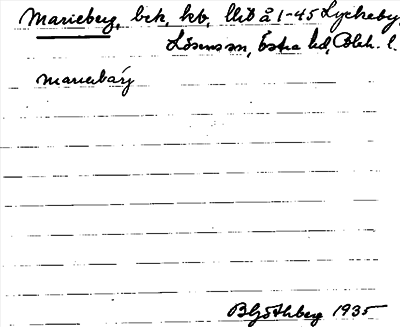 Marieberg, bck, kb, llid å 1-45 Lyckeby,
Lösenssn, Östra hd, Blek. l.
marıəbárj
BGöthberg 1935